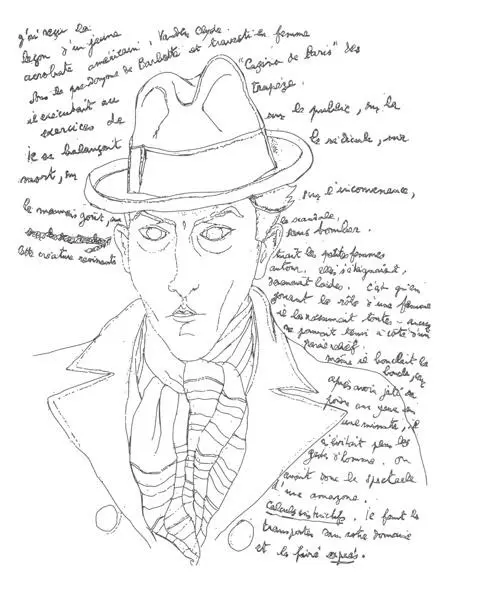 j'ai reçu la
leçon d'un jeune
acrobate américain, Vander Clyde.
Sous le pseudonyme de Barbette et travesti en femme
il exécutait au "Casino de Paris" des
exercices de trapèze.
Il se balançait sur le public, sur la
mort, sur le ridicule, sur
le mauvais goût, sur l'inconvenance,
le scandale,
sans tomber.
Cette créature ravissante
tuait les petites femmes
autour. Elles s'éteignaient,
devenaient laides. C'est qu'en
jouant le rôle d'une femme
il les résumait toutes -
ne pouvait tenir à côté d'un
même il bouclait la
boucle
après avoir jeté de
poudre aux yeux
une minute, il
n'évitait plus les
gestes d'homme. On
avait donc le spectacle
d'une amazone.
Calculs instinctifs. Il faut les
transporter dans notre domaine
et les faire exprès.